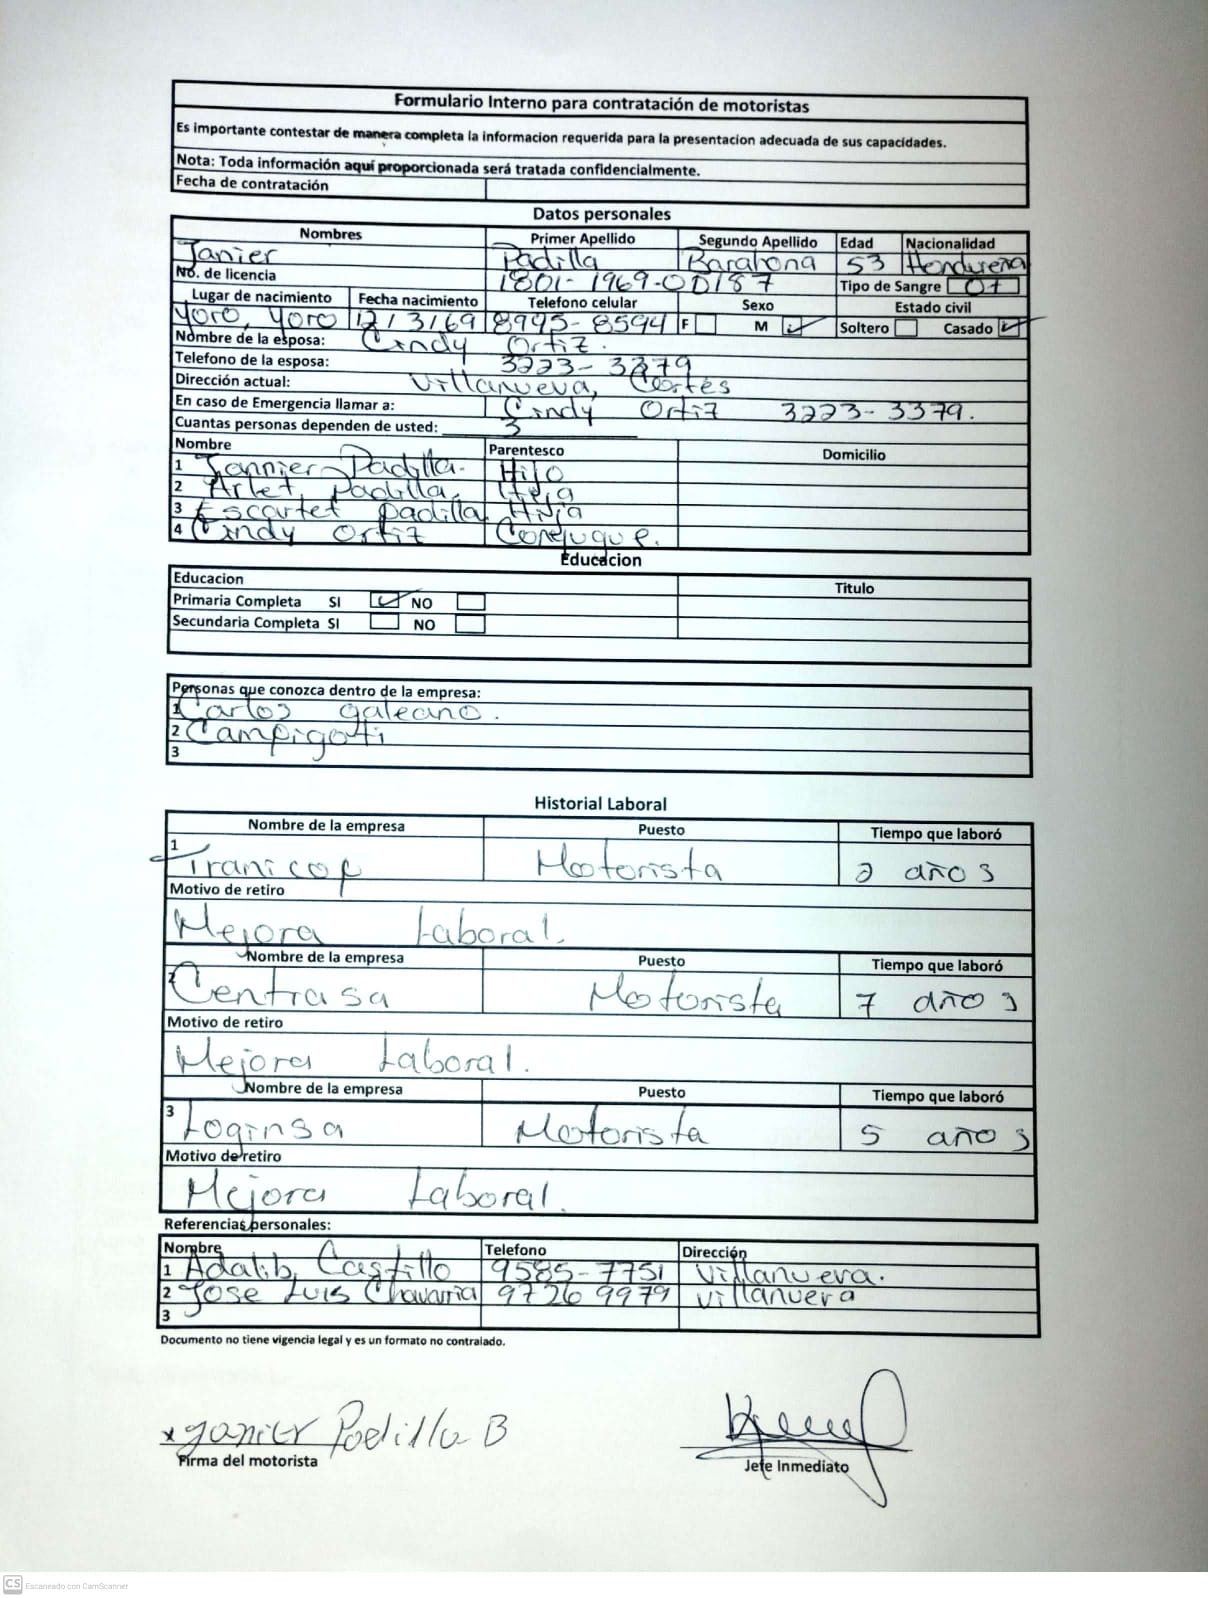 Formulario Interno para contratación de motoristas
Es importante contestar de manera completa la informacion requerida para la presentacion adecuada de sus capacidades.
Nota: Toda información aquí proporcionada será tratada confidencialmente.
Fecha de contratación
Datos personales
Nombres Primer Apellido Segundo Apellido Edad Nacionalidad
Janier Padilla Barahona 53 Hondureña
No. de licencia 1801-1969-00187 Tipo de Sangre O+
Lugar de nacimiento Fecha nacimiento Telefono celular Sexo Estado civil
Yoro, Yoro 12/3/69 8995-8594 F M Soltero Casado
Nombre de la esposa: Cindy Ortiz.
Telefono de la esposa: 3223-3379
Dirección actual: Villanueva, Cortés
En caso de Emergencia llamar a: Cindy Ortiz 3223-3379.
Cuantas personas dependen de usted: 3
Nombre Parentesco Domicilio
1 Jannier Padilla. Hijo
2 Arlet Padilla, Hija
3 Escartet padilla Hija
4 Cindy Ortiz Conjugue.
Educacion
Educacion Titulo
Primaria Completa SI NO
Secundaria Completa SI NO
Personas que conozca dentro de la empresa:
1 Carlos galeano.
2 Campigoti
3
Historial Laboral
Nombre de la empresa Puesto Tiempo que laboró
1 Tranicop Motorista 2 años
Motivo de retiro
Mejora Laboral.
Nombre de la empresa Puesto Tiempo que laboró
2 Centrasa Motorista 7 años
Motivo de retiro
Mejora Laboral.
Nombre de la empresa Puesto Tiempo que laboró
3 Loginsa Motorista 5 años
Motivo de retiro
Mejora Laboral.
Referencias personales:
Nombre Telefono Dirección
1 Adalib Castillo 9585-7751 Villanueva.
2 Jose Luis Chavarria 9726 9979 villanueva
3
Documento no tiene vigencia legal y es un formato no contralado.
x Janier Padilla B
Firma del motorista Jefe Inmediato
CS Escaneado con CamScanner